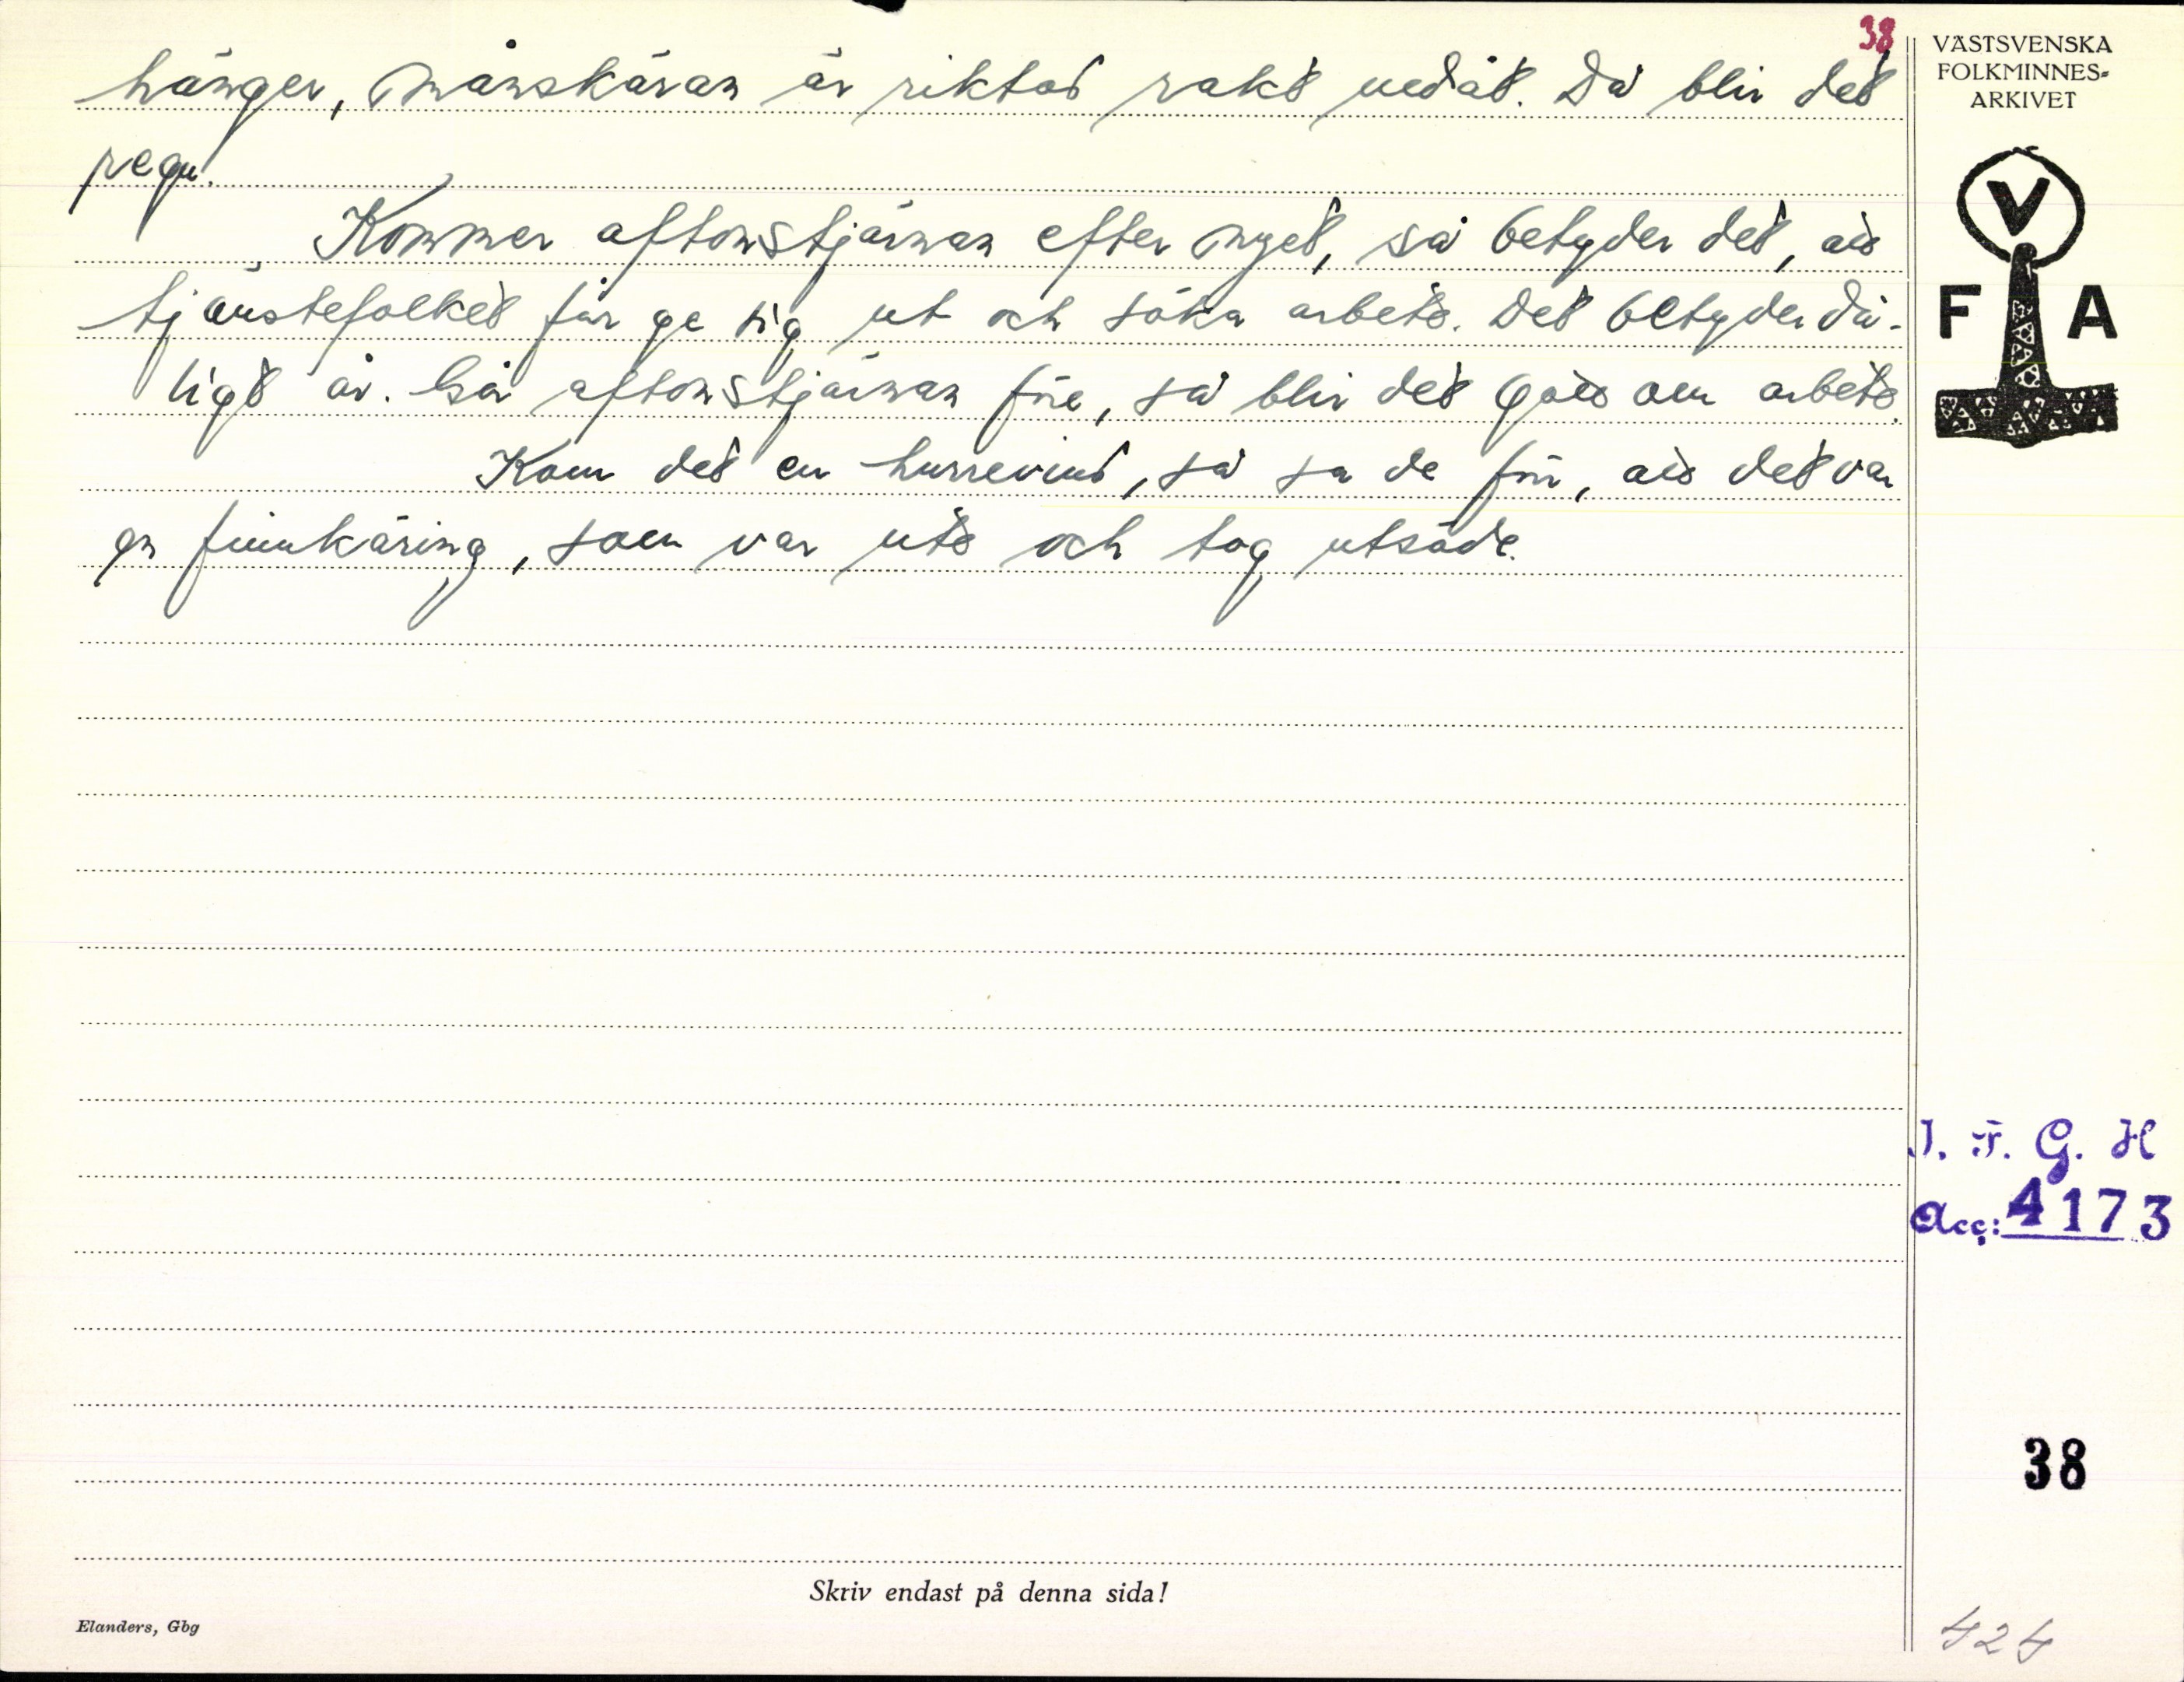 38
hänger, månskäran är riktad rakt nedåt. Då blir det
regn.
Kommer aftonstjärnan efter nyet, så betyder det, att
tjänstefolket får ge sig ut och söka arbete. Det betyder då-
ligt år. Går aftonstjärnan före, så blir det gott om arbete.
Kom det en hurrevind, så sa de för, att det var
en finnkäring, som var ute och tog utsäde.
VÄSTSVENSKA
FOLKMINNES-
ARKIVET
V
F A
I. F. G. H
Acc: 4173
38
Skriv endast på denna sida!
Elanders, Gbg
424